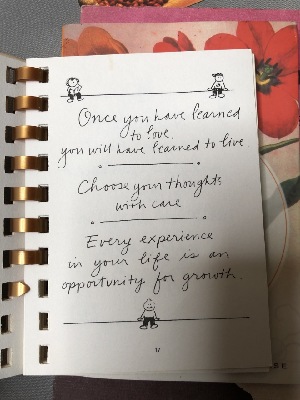 Once you have learned
to love,
you will have learned to live.
Choose your thoughts
with care
Every experience
in your life is an
opportunity for growth.
17
BE